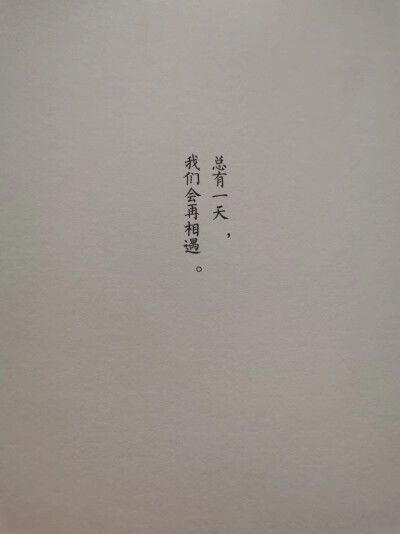 总有一天，
我们会再相遇。